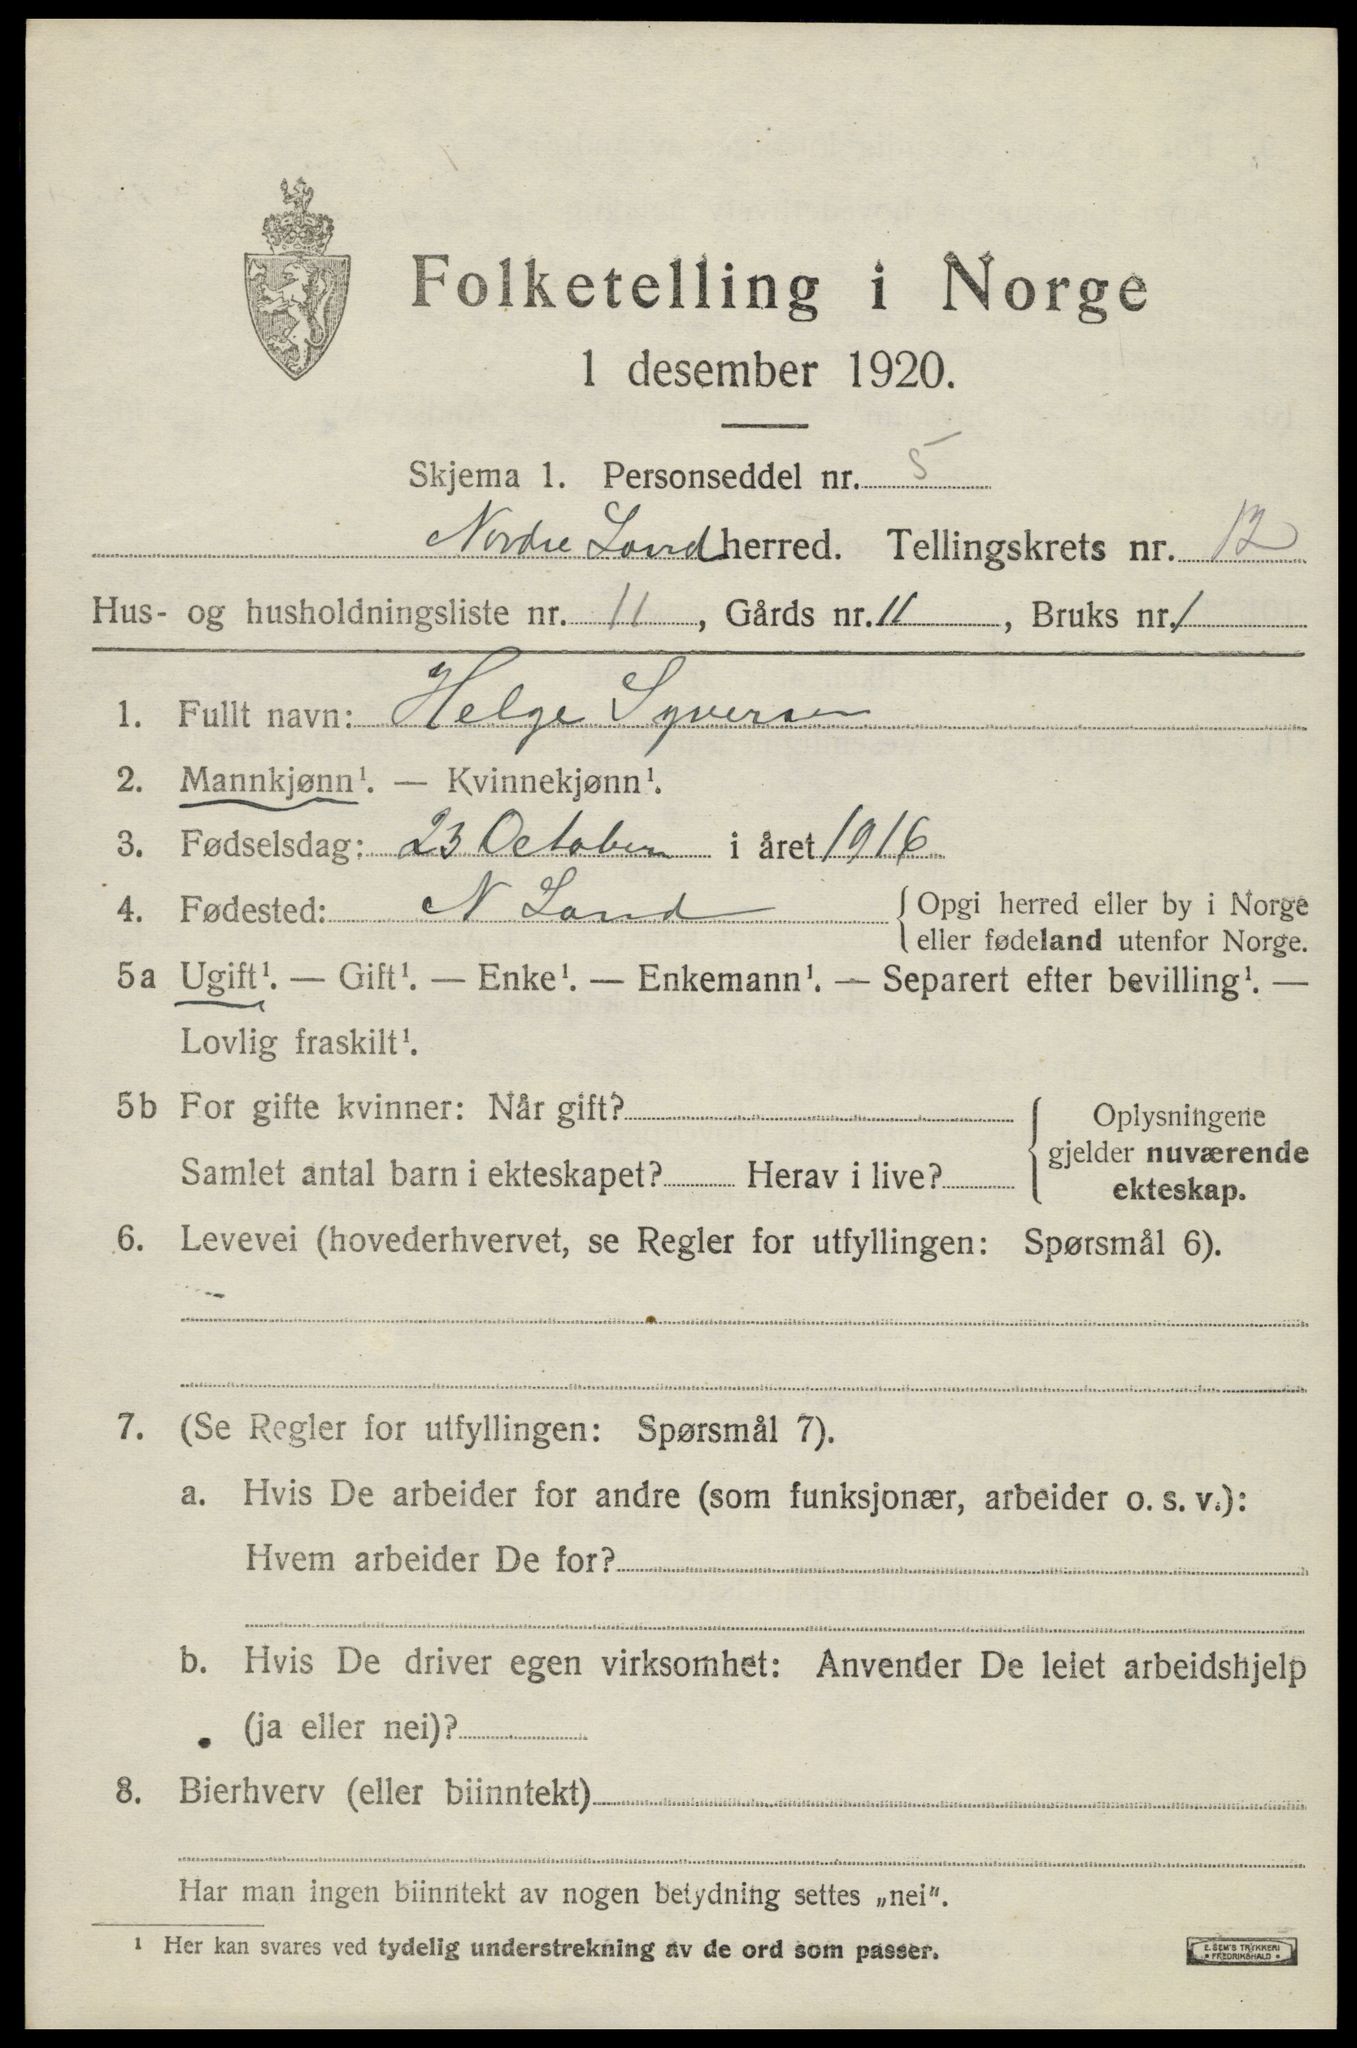 Folketelling i Norge
1 desember 1920.
Skjema 1. Personseddel nr. 5
Nordre Land herred. Tellingskrets nr. 12
Hus- og husholdningsliste nr. 11, Gårds nr. 11, Bruks nr. 1
1. Fullt navn: Helge Syversen
2. Mannkjønn¹. — Kvinnekjønn¹.
3. Fødselsdag: 23 October i året 1916
4. Fødested: N Land { Opgi herred eller by i Norge
eller fødeland utenfor Norge.
5a Ugift¹. — Gift¹. — Enke¹. — Enkemann¹. — Separert efter bevilling¹. —
Lovlig fraskilt¹.
5b For gifte kvinner: Når gift?
Samlet antal barn i ekteskapet? Herav i live?
{ Oplysningene
gjelder nuværende
ekteskap.
6. Levevei (hovederhvervet, se Regler for utfyllingen: Spørsmål 6).
7. (Se Regler for utfyllingen: Spørsmål 7).
a. Hvis De arbeider for andre (som funksjonær, arbeider o. s. v.):
Hvem arbeider De for?
b. Hvis De driver egen virksomhet: Anvender De leiet arbeidshjelp
(ja eller nei)?
8. Bierhverv (eller biinntekt)
Har man ingen biinntekt av nogen betydning settes „nei".
¹ Her kan svares ved tydelig understrekning av de ord som passer.
E. SEM'S TRYKKERI
FREDRIKSHALD